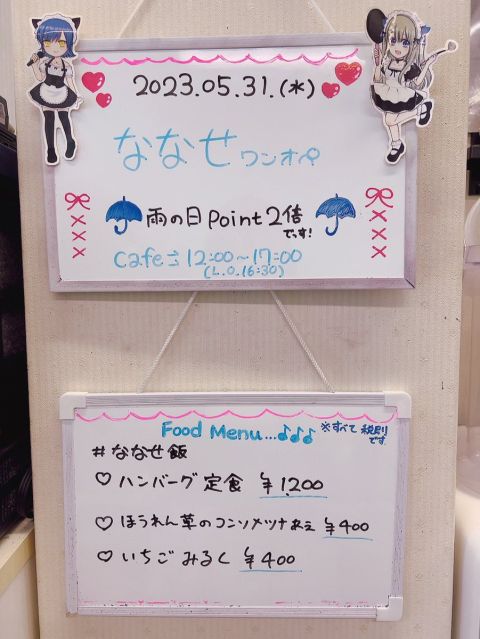 2023.05.31.(水)
ななせワンオペ
雨の日 Point 2倍
でっす!
Cafe:12:00〜17:00
(L.O.16:30)
Food Menu...♪♪♪
※すべて税別
です。
#ななせ飯
♡ハンバーグ定食 ¥1,200
♡ほうれん草のコンソメツナあえ ¥400
♡いちごみるく ¥400